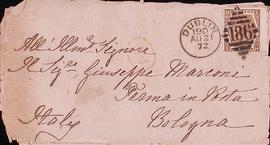 DUBLIN
19D
AU 21
72
186
All' Illmo. Signore
Il Sigre. Giuseppe Marconi
Ferma in Posta
Italy
Bologna